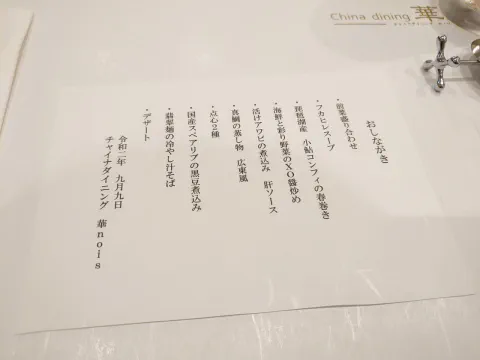 China dining 華
おしながき
・前菜盛り合わせ
・フカヒレスープ
・琵琶湖産 小鮎コンフィの春巻き
・海鮮と彩り野菜のXO醬炒め
・活けアワビの煮込み 肝ソース
・真鯛の蒸し物 広東風
・点心2種
・国産スペアリブの黒豆煮込み
・翡翠麺の冷やし汁そば
・デザート
令和二年 九月九日
チャイナダイニング 華nois